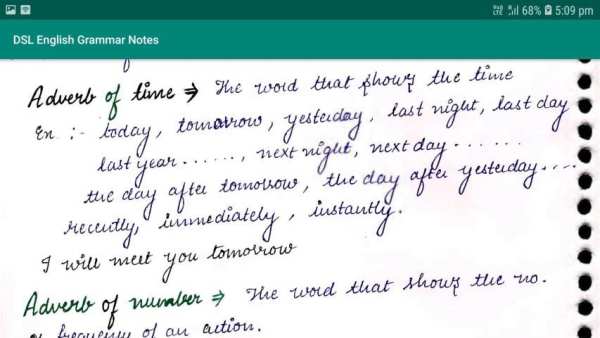 VoD LTE 68% 5:09 pm
DSL English Grammar Notes
Adverb of time ⇒ The word that shows the time
Ex :- today, tomorrow, yesterday, last night, last day
last year ......, next night, next day ......
the day after tomorrow, the day after yesterday ....
recently, immediately, instantly.
I will meet you tomorrow
Adverb of number ⇒ The word that shows the no.
of frequency of an action.